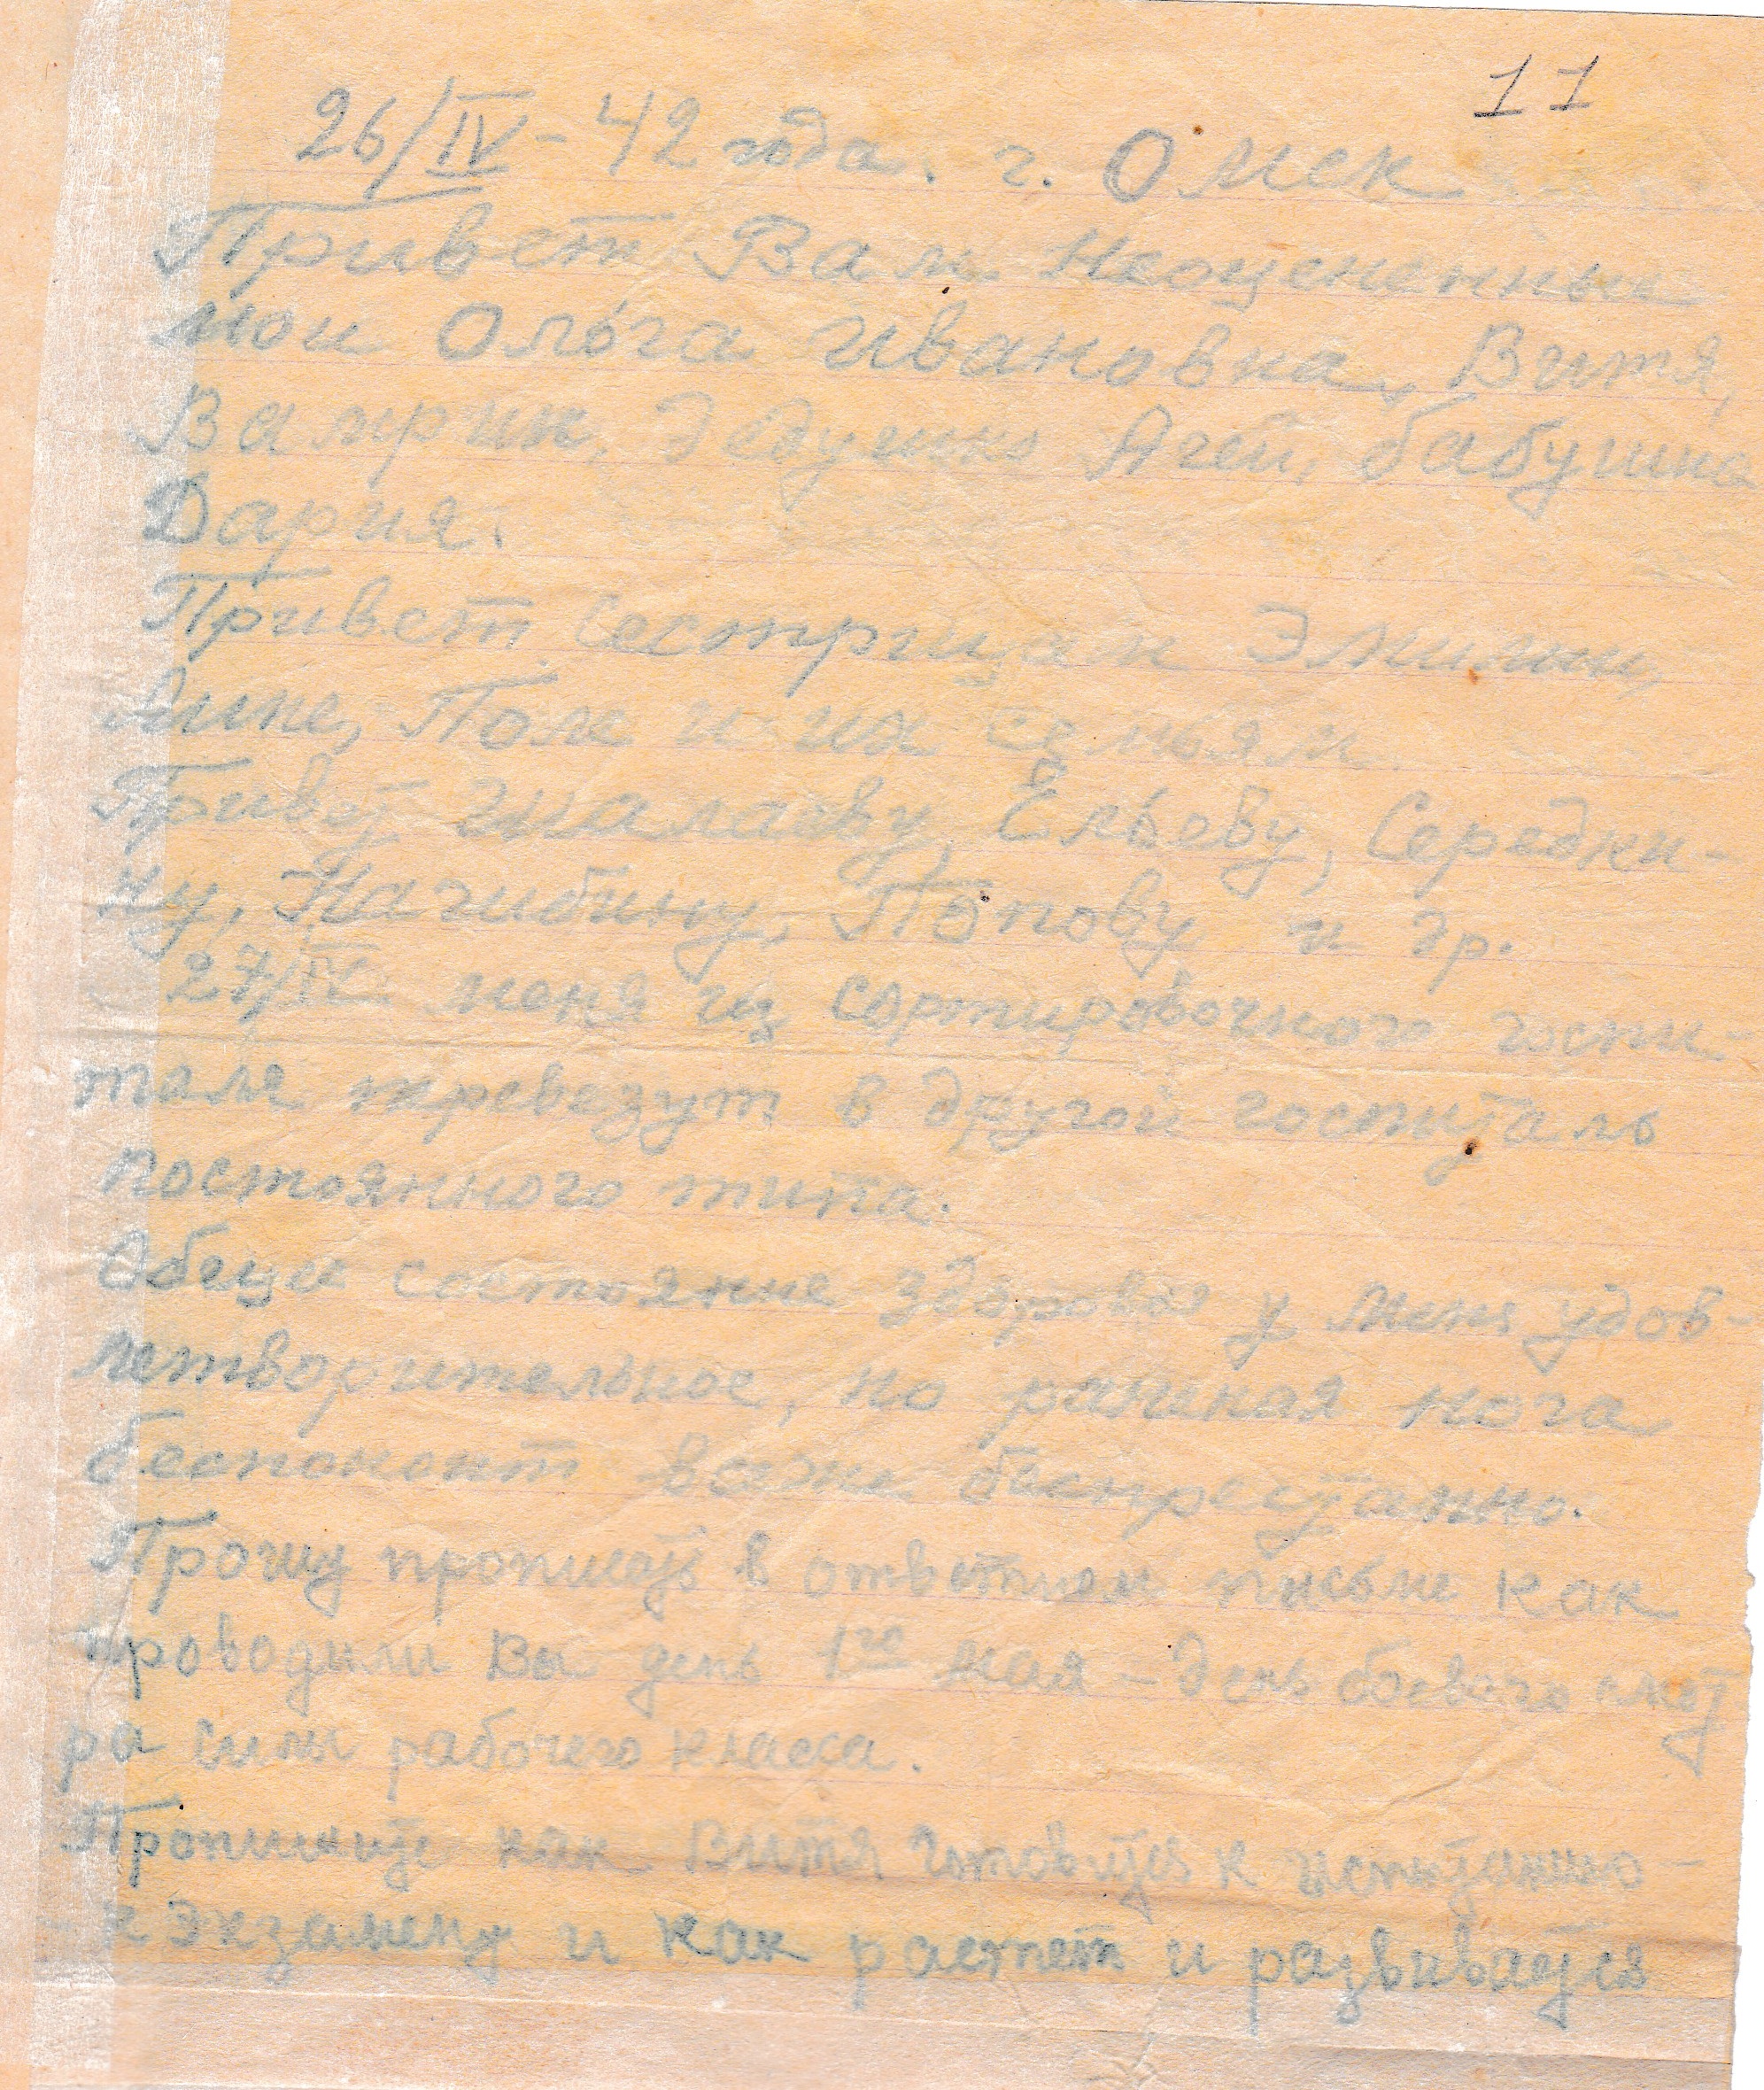 11
26/IV - 42 года. г. Омск
Привет Вам неоцененные
мои Ольга Ивановна, Витя,
дедушка Агей, бабушка
Дария.
Привет сестрицам Эмилии,
Анне, Поле и их семьям.
Привет Ельеву, Середки-
ну, Нагибину, Попову и др.
27/IV меня из сортировочного госпи-
таля перевезут в другой госпиталь
постоянного типа.
Обеще состояние здоровья у меня удов-
летворительное, но раненая нога
беспокоит беспрестанно.
Прошу прописать в ответном письме как
проводили Вы день 1го мая - день боевого смот
ра силы рабочего класса.
Пропишите как Витя готовится к испытанию -
- к экзамену и как растет и развивается